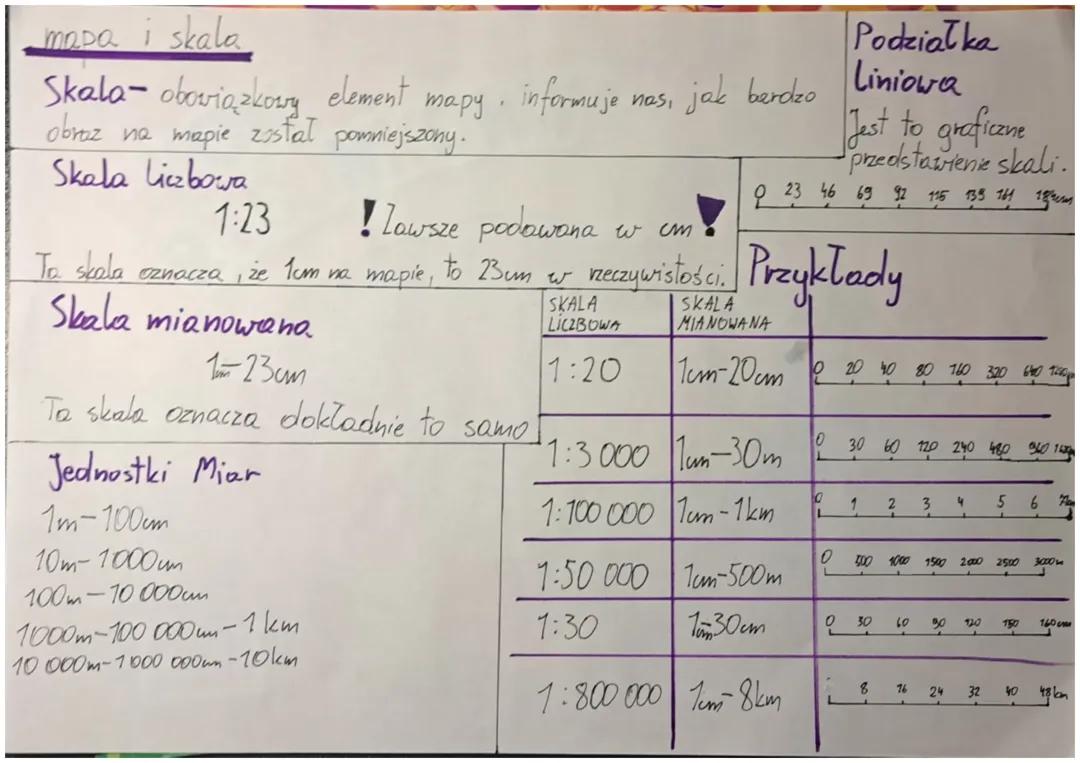 mapa i skala
Skala- obowiązkowy element mapy. informuje nas, jak bardzo
obraz na mapie został pomniejszony.
Podziałka
liniowa
Jest to graficzne
przedstawienie skali.
0 23 46 69 92 115 138 161
Skala liczbowa
1:23
! Zawsze podawana w cm !
Ta skala oznacza, że 1cm na mapie, to 23cm w rzeczywistości.
Skala mianowana
1cm-23cm
Ta skala oznacza dokładnie to samo
Jednostki Miar
1m-100cm
10m-1000cm
100m-10 000cm
1000m-100 000cm-1km
10 000m-1000 000cm-10km
Przykłady
SKALA LICZBOWA
SKALA MIANOWANA
1:20 1cm-20cm 0 20 40 80 160 320 640
1:3000 1cm-30m 0 30 60 120 240 480 960
1:100 000 1cm-1km 0 1 2 3 4 5 6 7km
1:50 000 1cm-500m 0 500 1000 1500 2000 2500 3000m
1:30 1cm-30cm 0 30 60 90 120 150 160cm
1:800 000 1cm-8km 8 16 24 32 40 48km